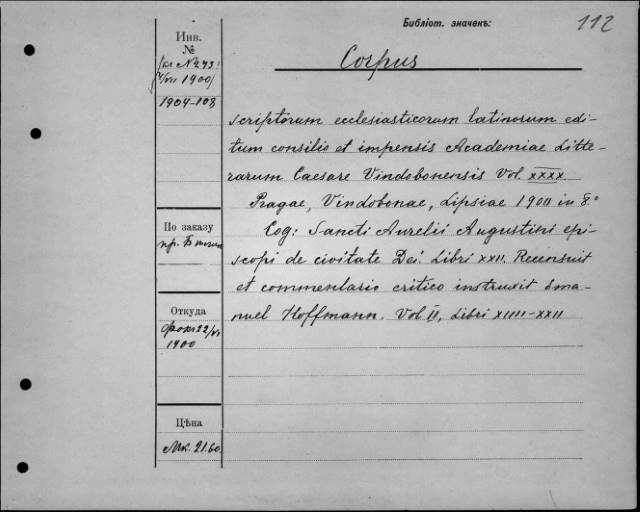 Библіот. значекъ:
112
Инв.
№
1900
1904-108
Corpus
scriptorum ecclesiasticorum latinorum edi-
tum consilio et impensis Academiae Litte-
rarum Caesare Vindobonensis Vol. XXXX.
Pragae, Vindobonae, Lipsiae 1900 in 8°
Eog: Sancti Aurelii Augustini epi-
scopi de civitate Dei. Libri XXII. Recensuit
et commentario critico instruxit Ema-
nuel Hoffmann. Vol II, Libri XIIII-XXII
По заказу
пр.
Откуда
1900
Цѣна
Мк. 21.60